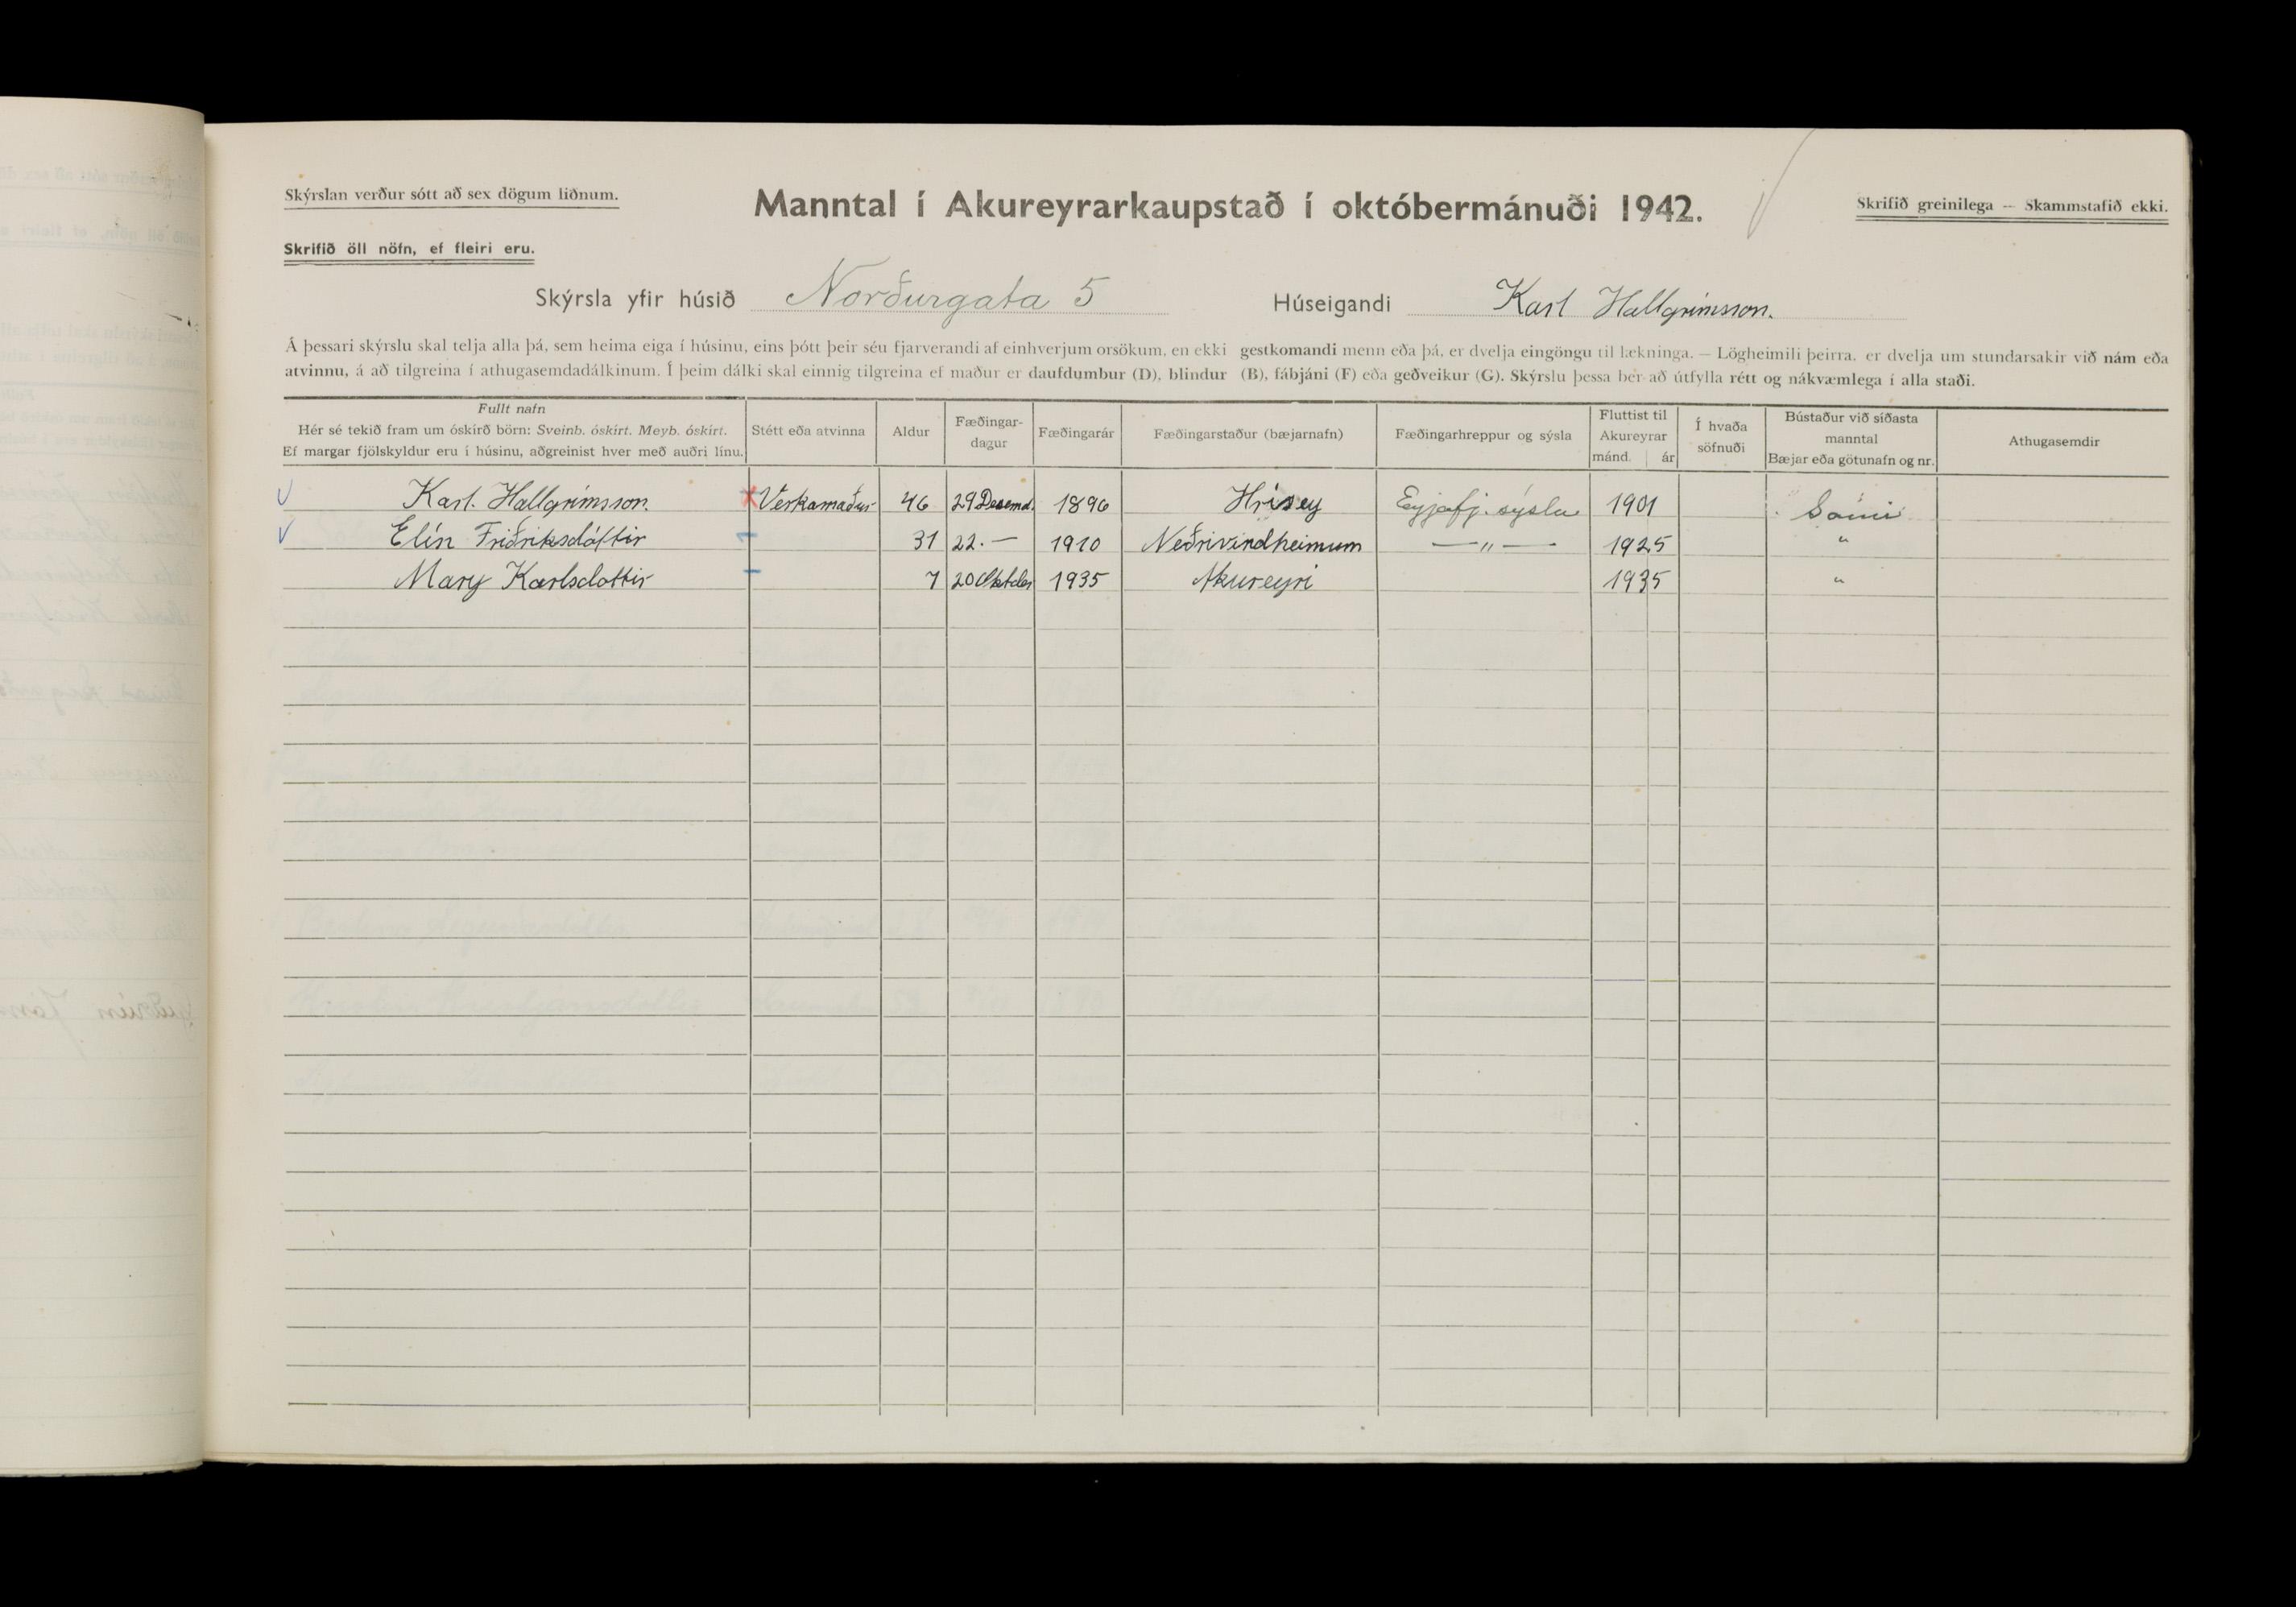 Skýrslan verður sótt að sex dögum liðnum.
Manntal í Akureyrarkaupstað í októbermánuði 1942.
Skrifið greinilega — Skammstafið ekki.
Skrifið öll nöfn, ef fleiri eru.
Skýrsla yfir húsið Norðurgata 5 Húseigandi Karl Hallgrímsson.
Á þessari skýrslu skal telja alla þá, sem heima eiga í húsinu, eins þótt þeir séu fjarverandi af einhverjum orsökum, en ekki gestkomandi menn eða þá, er dvelja eingöngu til lækninga. — Lögheimili þeirra, er dvelja um stundarsakir við nám eða
atvinnu, á að tilgreina í athugasemdadálkinum. Í þeim dálki skal einnig tilgreina ef maður er daufdumbur (D), blindur (B), fábjáni (F) eða geðveikur (G). Skýrslu þessa ber að útfylla rétt og nákvæmlega í alla staði.
Fullt nafn
Hér sé tekið fram um óskírð börn: Sveinb. óskírt. Meyb. óskírt.
Ef margar fjölskyldur eru í húsinu, aðgreinist hver með auðri línu.
Stétt eða atvinna
Aldur
Fæðingar-
dagur
Fæðingarár
Fæðingarstaður (bæjarnafn)
Fæðingarhreppur og sýsla
Fluttist til
Akureyrar
mánd. ár
Í hvaða
söfnuði
Bústaður við síðasta
manntal
Bæjar eða götunafn og nr.
Athugasemdir
Karl. Hallgrímsson. Verkamaður 46 29 Desemd. 1896 Hrísey Eyjafj. sýslu 1901 Sami
Elín Friðriksdóttir 31 22. — 1910 Neðrivindheimum — " — 1925 "
Mary Karlsdottir 7 20 Oktober 1935 Akureyri 1935 "